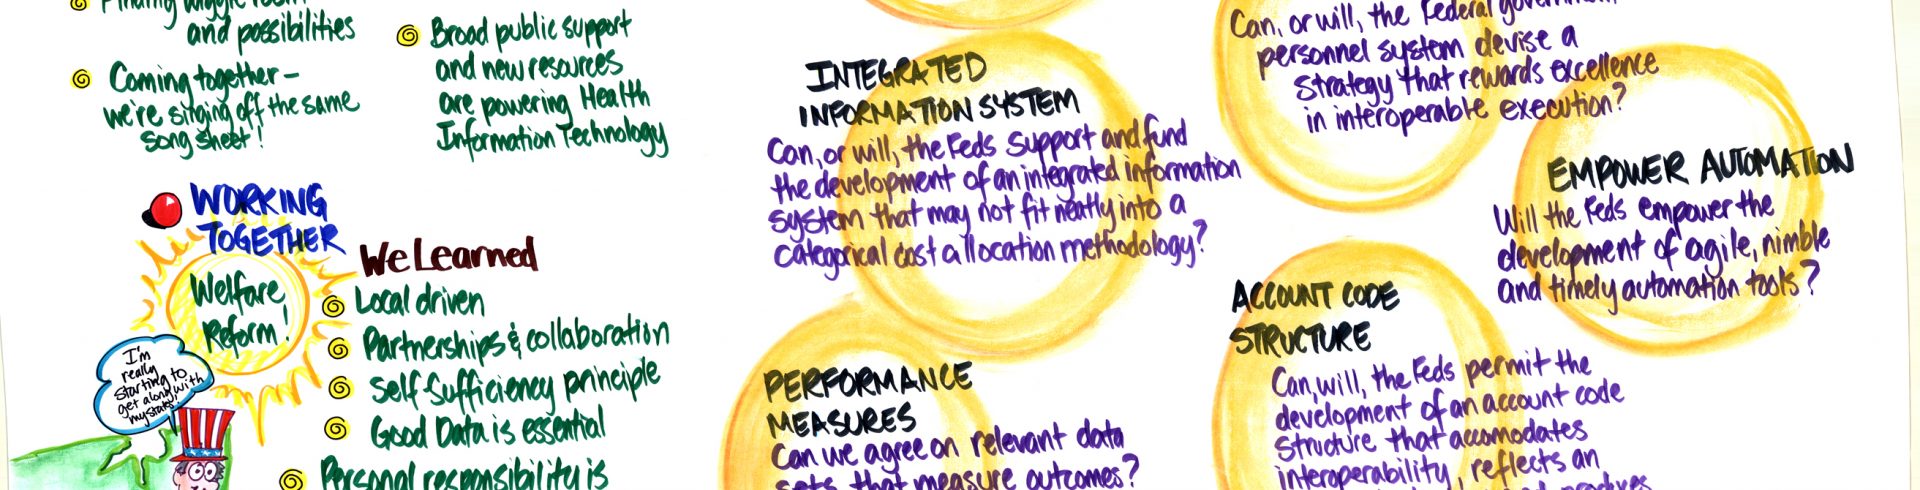 Finding wiggle room
and possibilities
Coming together –
we're singing off the same
song sheet!
Broad public support
and new resources
are powering Health
Information Technology
WORKING
TOGETHER
Welfare
Reform!
I'm
really
starting to
get along with
my states!
We Learned
Local driven
Partnerships & collaboration
Self Sufficiency principle
Good Data is essential
Personal responsibility is
INTEGRATED
INFORMATION SYSTEM
Can, or will, the Feds support and fund
the development of an integrated information
system that may not fit neatly into a
categorical cost allocation methodology?
PERFORMANCE
MEASURES
Can we agree on relevant data
sets that measure outcomes?
Can, or will, the Federal government
personnel system devise a
strategy that rewards excellence
in interoperable execution?
EMPOWER AUTOMATION
Will the Feds empower the
development of agile, nimble
and timely automation tools?
ACCOUNT CODE
STRUCTURE
Can, will, the Feds permit the
development of an account code
structure that accomodates
interoperability, reflects an